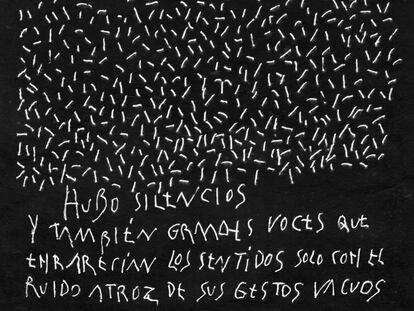 HUBO SILENCIOS
Y TAMBIÉN GRANDES VOCES QUE
ENRARECÍAN LOS SENTIDOS SOLO CON EL
RUIDO ATROZ DE SUS GESTOS VACUOS